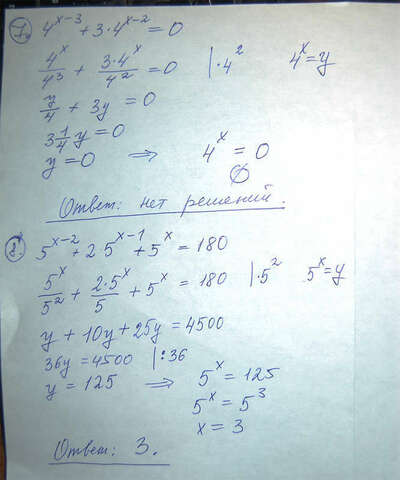 7. 4^(x-3) + 3·4^(x-2) = 0
4^x/4^3 + 3·4^x/4^2 = 0 |·4^2 4^x = y
y/4 + 3y = 0
3 1/4 y = 0
y = 0 ⇒ 4^x = 0
∅
Ответ: нет решений.
8. 5^(x-2) + 2·5^(x-1) + 5^x = 180
5^x/5^2 + 2·5^x/5 + 5^x = 180 |·5^2 5^x = y
y + 10y + 25y = 4500
36y = 4500 |:36
y = 125 ⇒ 5^x = 125
5^x = 5^3
x = 3
Ответ: 3.